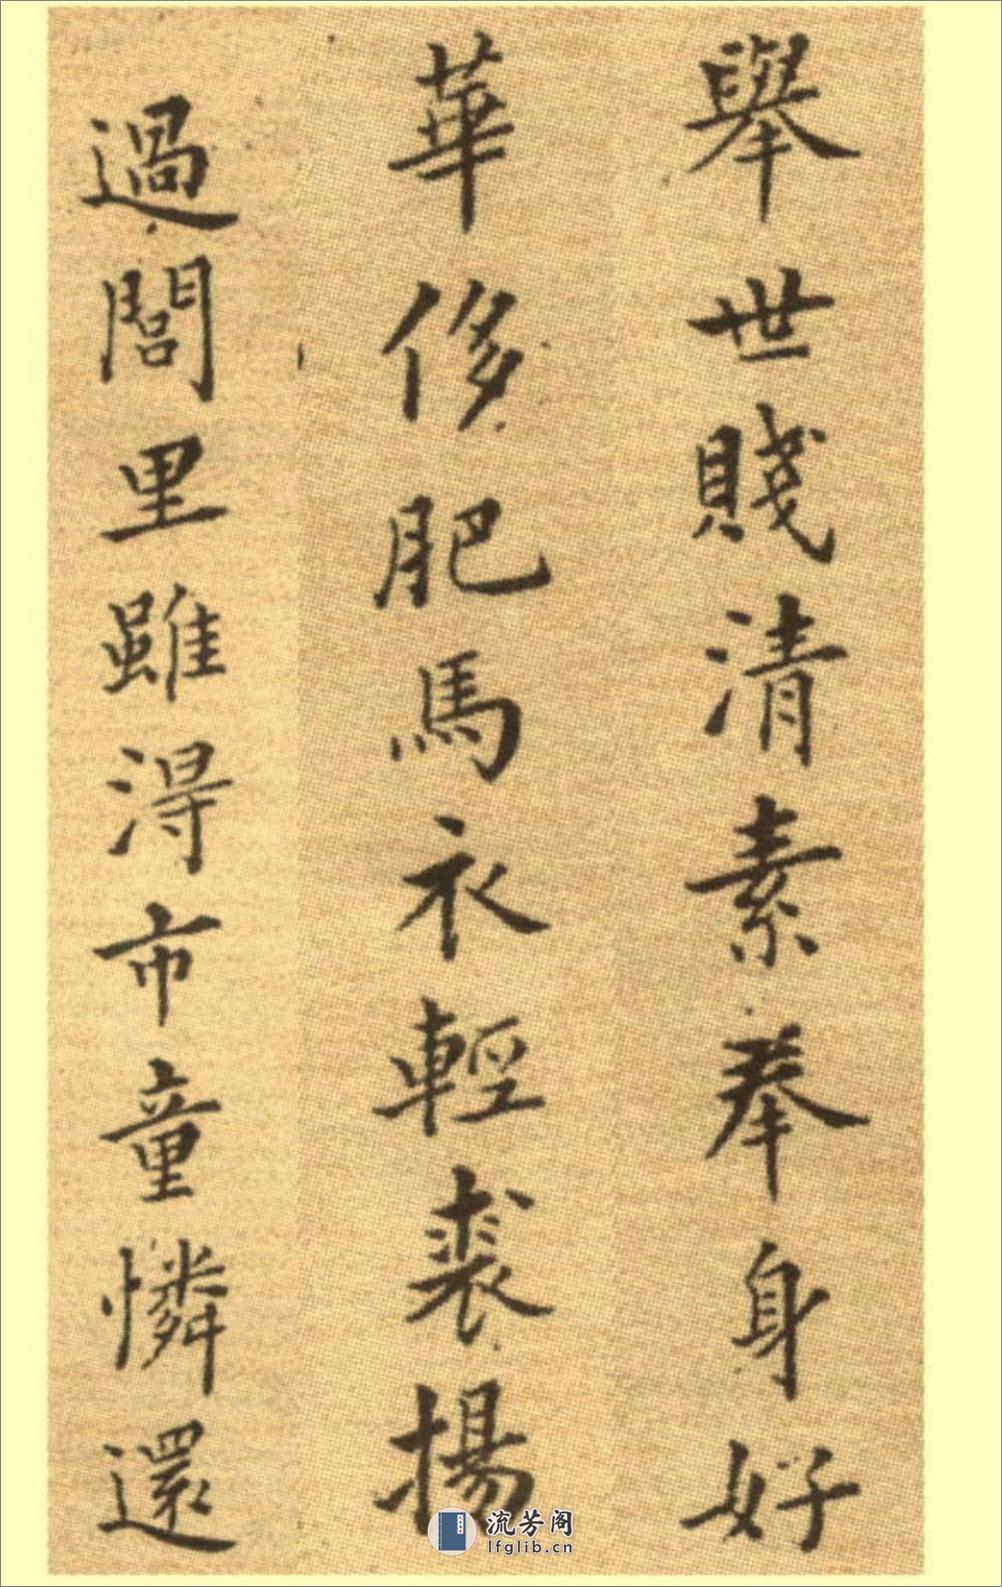 舉世賤清素奉身好
華侈肥馬衣輕裘揚
過閭里雖得市童憐還
流芳阁
lfglib.cn